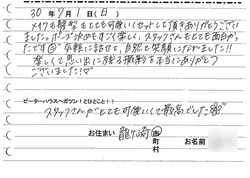 30年9月1日(日)
メイクも髪型もとても可愛くセットして頂きありがとうござい
ました。ポーズ決めもすごく楽しく、スタッフさんもとても面白かっ
たです 気軽に話せて、自然と笑顔になれました!!
楽しくて思い出に残る撮影を本当にありがとう
ございました!!♡
ピーターハウスへガツン!とひとこと!!
スタッフさんがとても可愛いくて最高でした
お住まい 龍ヶ崎 市 町 村 お名前